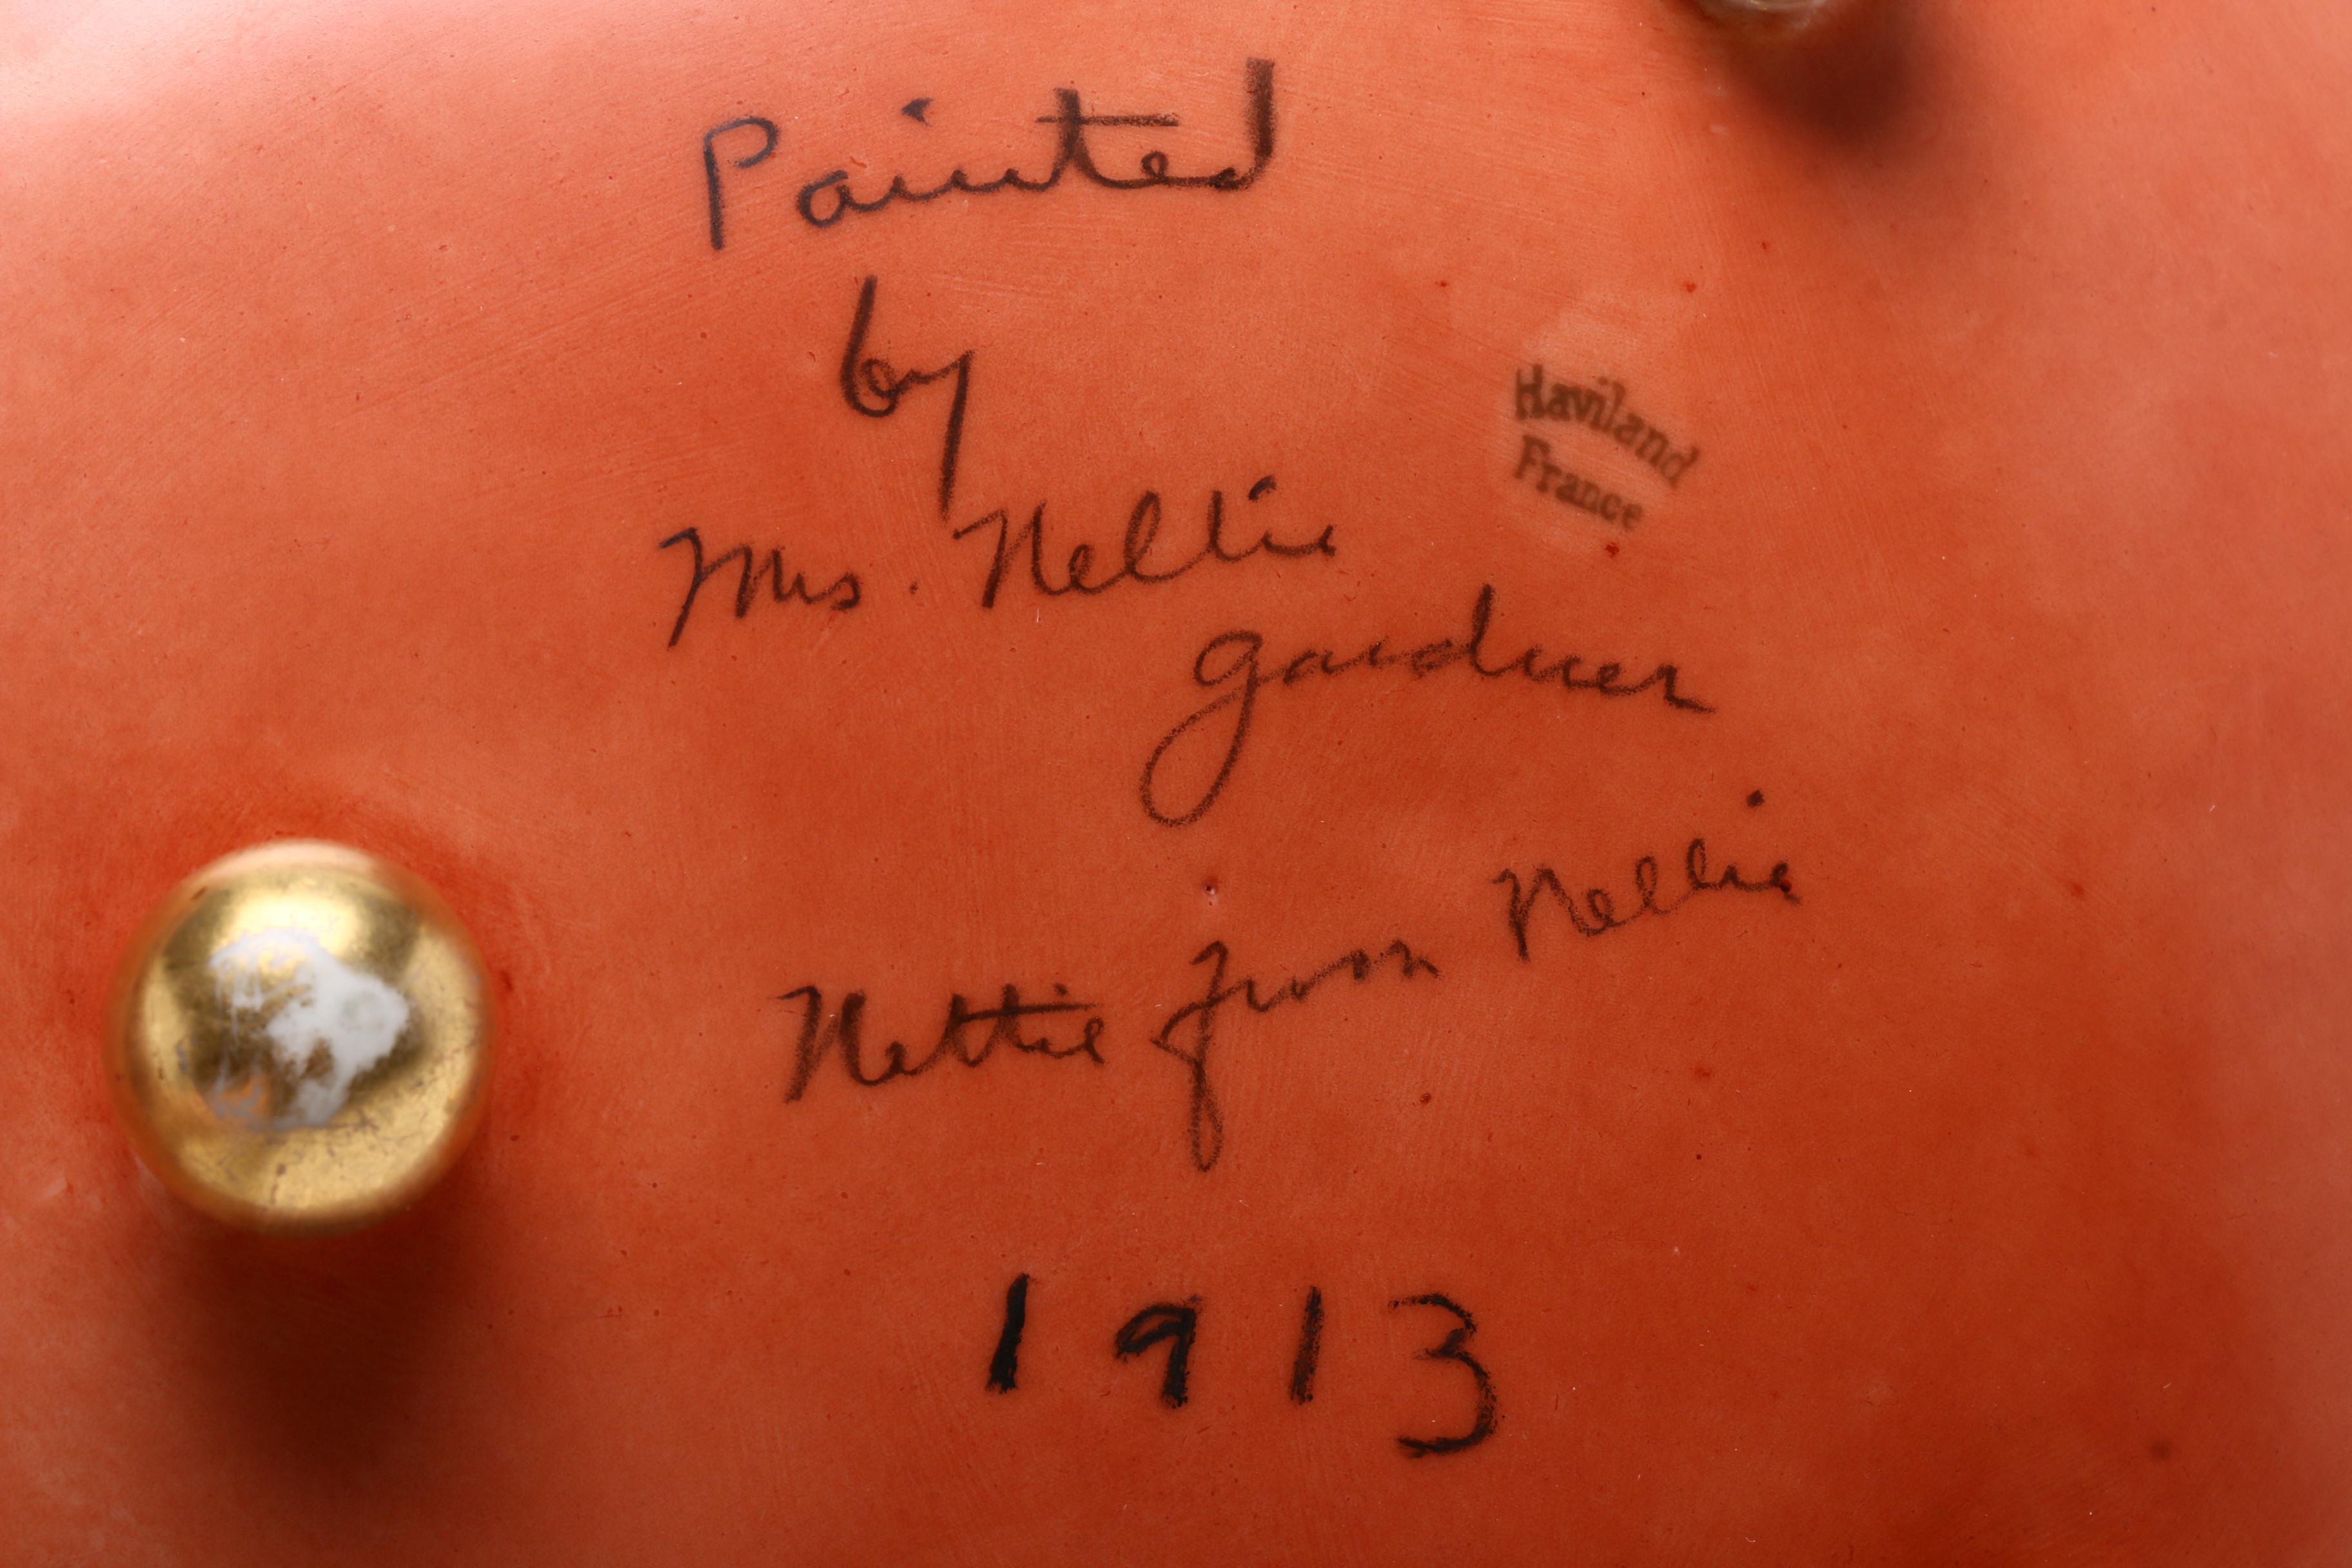 Painted
by
Mrs. Nellie
Gardner
Nettie from Nellie
1913
Haviland
France